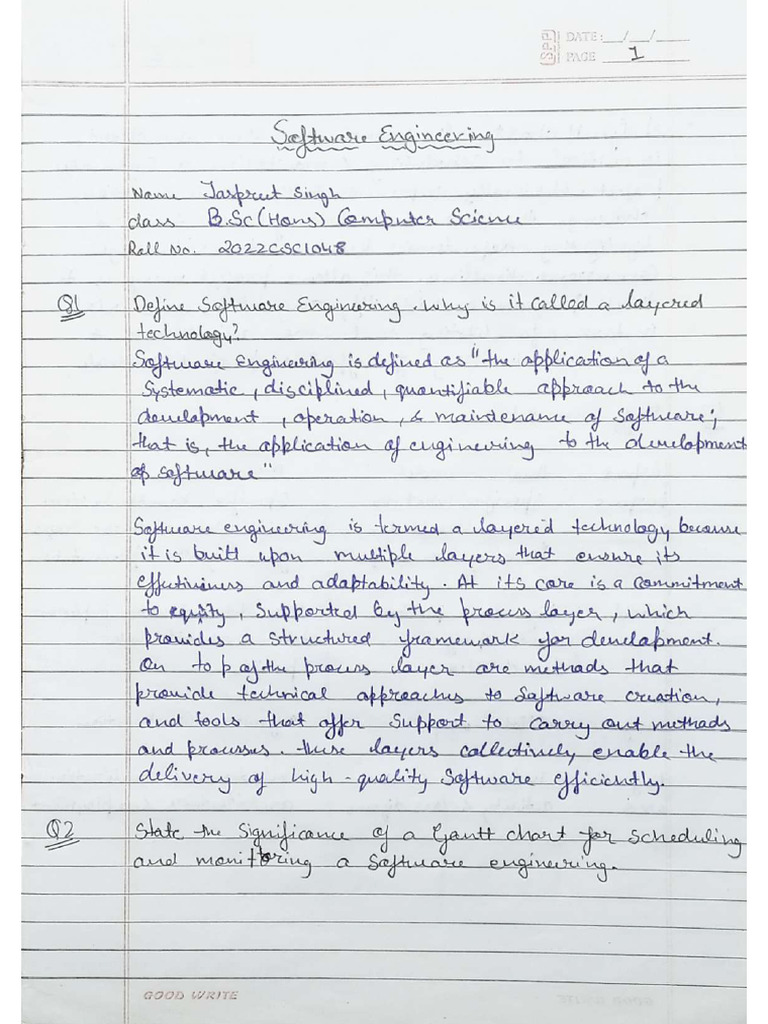 SPP DATE: __/__/____
PAGE 1
Software Engineering
Name Jarpreet Singh
class B.Sc (Hons) Computer Science
Roll No. 2022CSC1048
Q1 Define Software Engineering. Why is it called a layered
technology?
Software Engineering is defined as "the application of a
systematic, disciplined, quantifiable approach to the
development, operation, & maintenance of software;
that is, the application of engineering to the development
of software"
Software engineering is termed a layered technology because
it is built upon multiple layers that ensure its
effectiveness and adaptability. At its core is a commitment
to , supported by the process layer, which
provides a structured framework for development.
On top of the process layer are methods that
provide technical approaches to software creation,
and tools that offer support to carry out methods
and processes. these layers collectively enable the
delivery of high-quality software efficiently.
Q2 State the significance of a Gantt chart for scheduling
and monitoring a software engineering.
GOOD WRITE